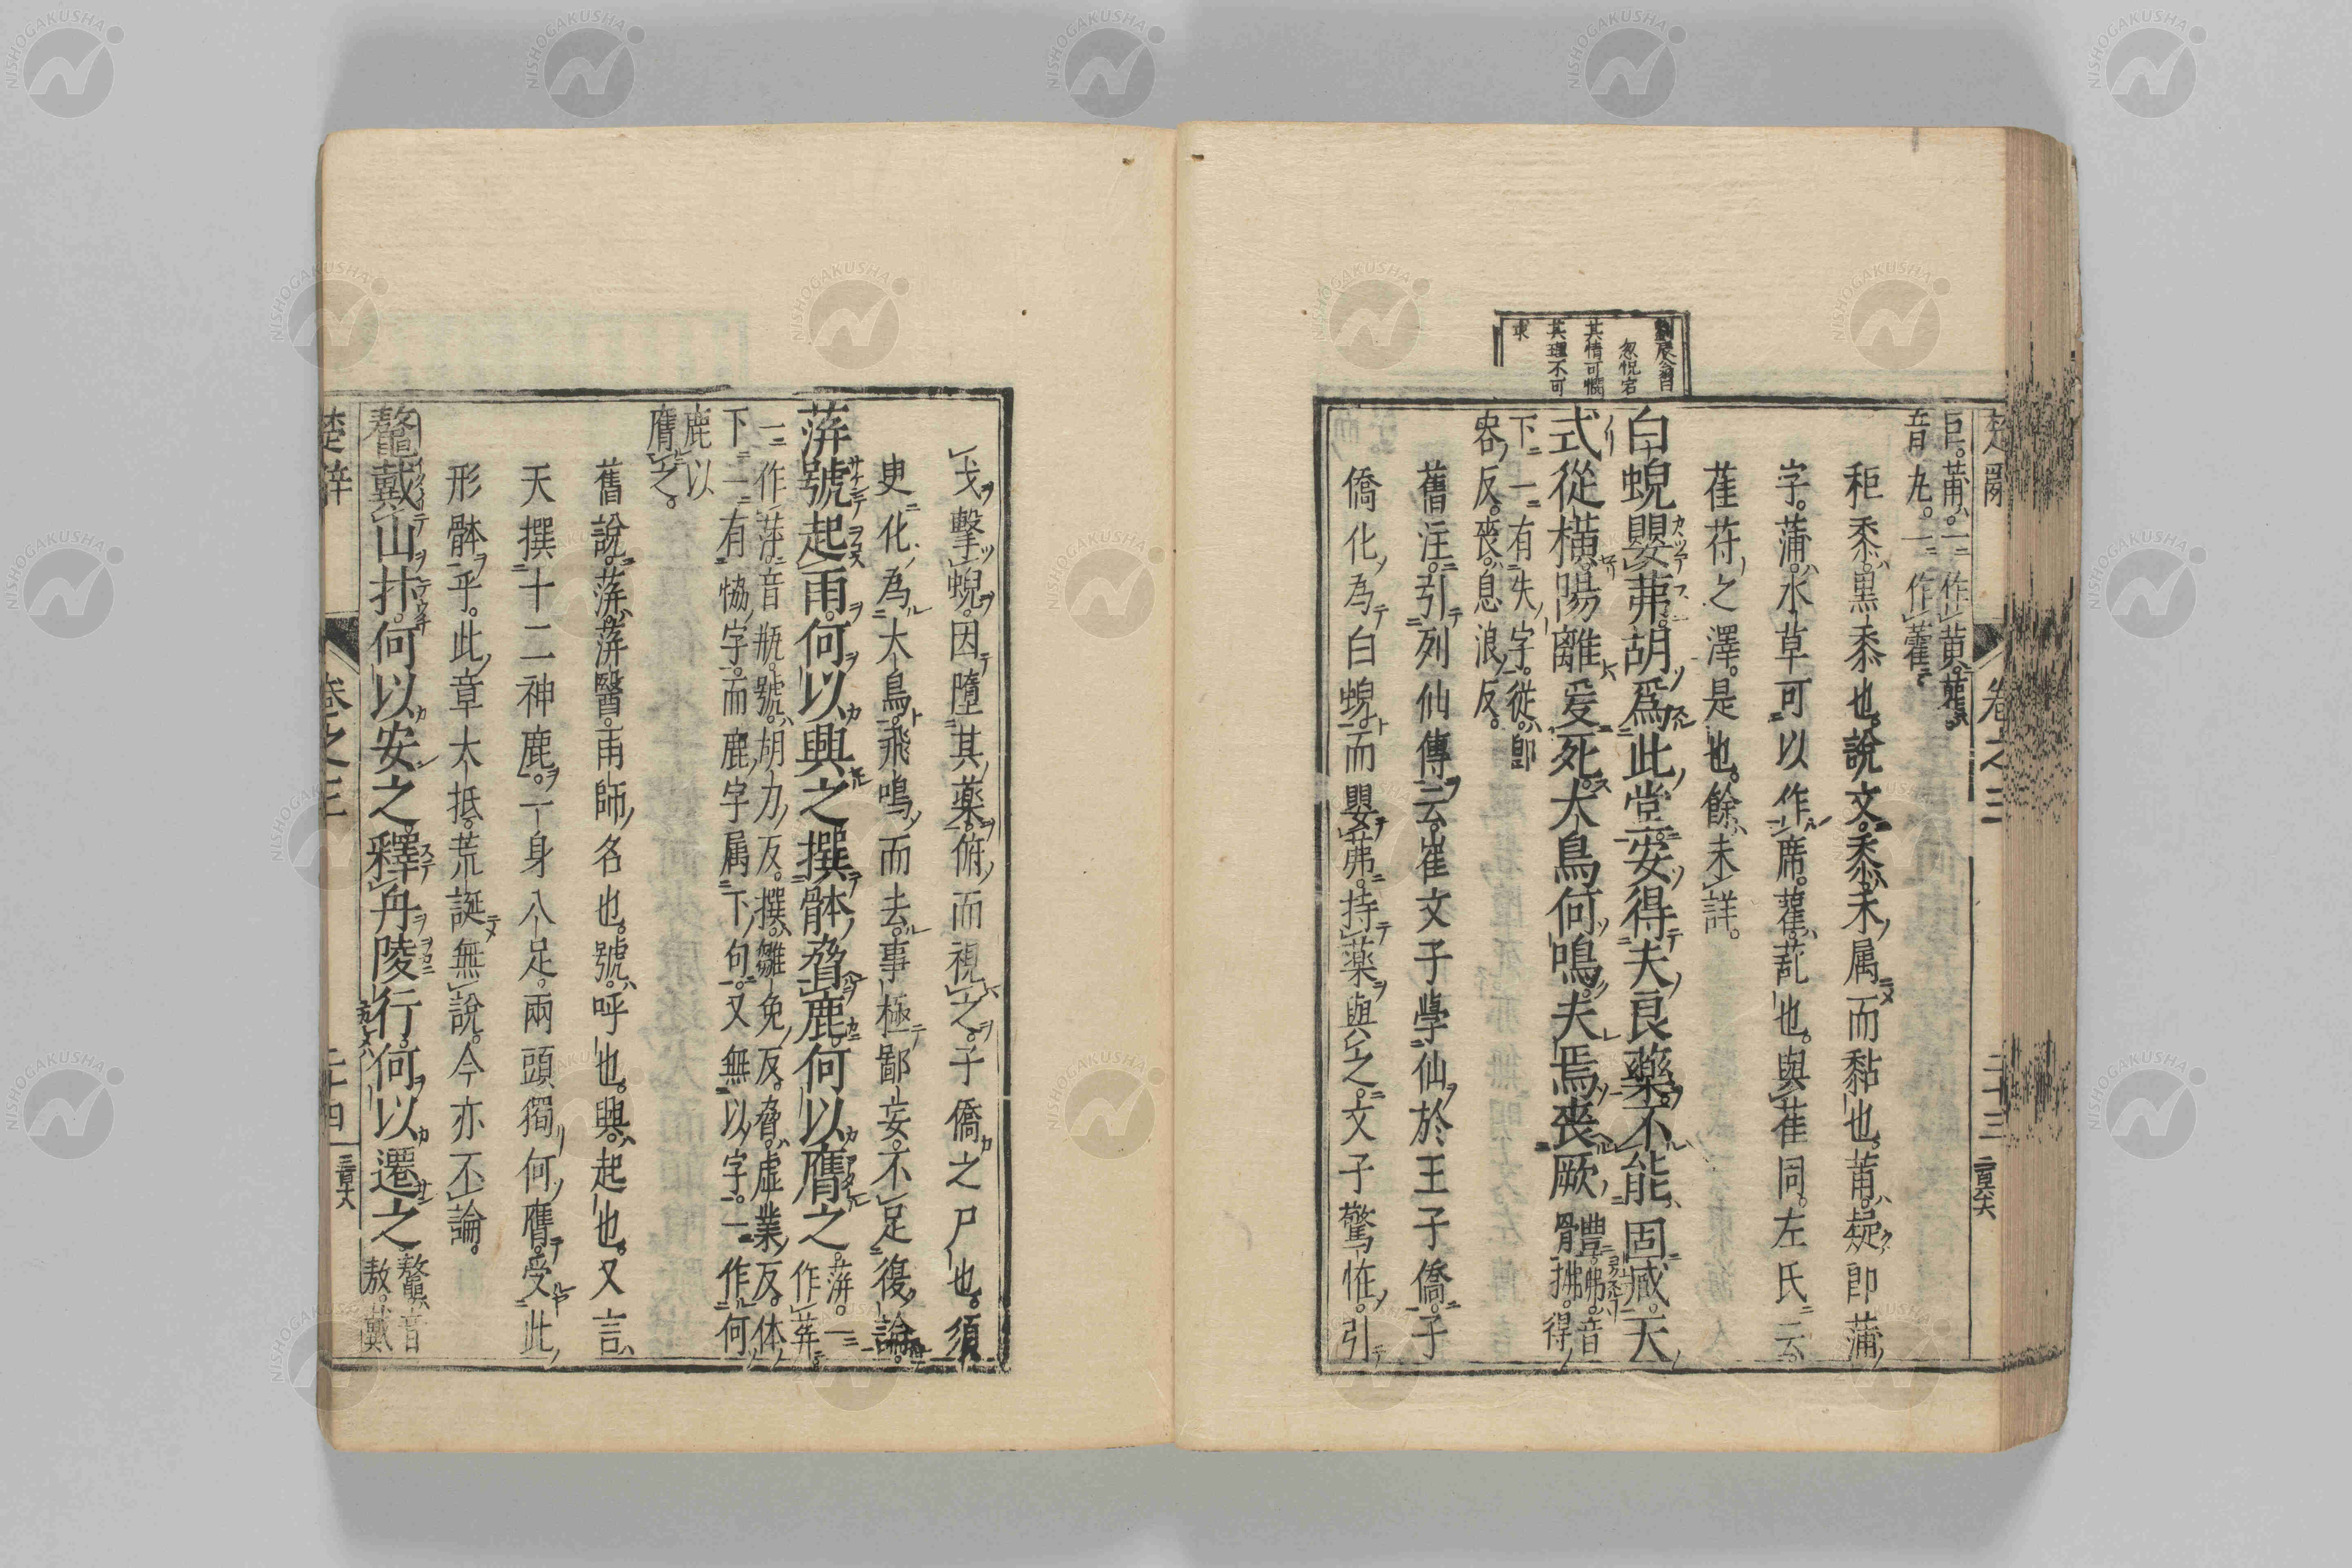 楚辭 卷之三 二十三
巨。莆。一作黄。雚。
音丸。一作雚。
秬黍。黒黍也。說文。黍禾属而黏也。莆。疑即蒲
字。蒲。水草可以作席。雚。薍也。與萑同。左氏云。
萑苻之澤。是也。餘未詳。
白蜺嬰茀。胡爲此堂。安得夫良藥。不能固臧。天
式從横。陽離爰死。大鳥何鳴。夫焉喪厥
體。茀。音拂。得
下一有失字。從。即
容反。喪。息浪反。
舊注。引列仙傳云。崔文子學仙於王子僑。子
僑化為白蜺而嬰茀。持藥與之。文子驚怪。引
其情可憫
其理不可
求
戈擊蜺。因墮其藥。俯而視之。子僑之尸也。須
臾化為大鳥。飛鳴而去。事極鄙妄。不足復論。
蓱號起雨。何以興之。撰体脅鹿。何以膺之。
一作萍。音瓶。號。胡力反。撰。雛免反。脅。虚業反。体
下一有協字。而鹿字属下句。又無以字。一作何
鹿以
膺之。
舊說。蓱。蓱醫。雨師名也。號。呼也。興。起也。又言。
天撰十二神鹿。一身八足。兩頭獨何膺受此
形骵乎。此章大抵荒誕無說。今亦不論。
鼇戴山抃。何以安之。釋舟陵行。何以遷之
鼇。音
敖。戴
楚辭 卷之三 二十四